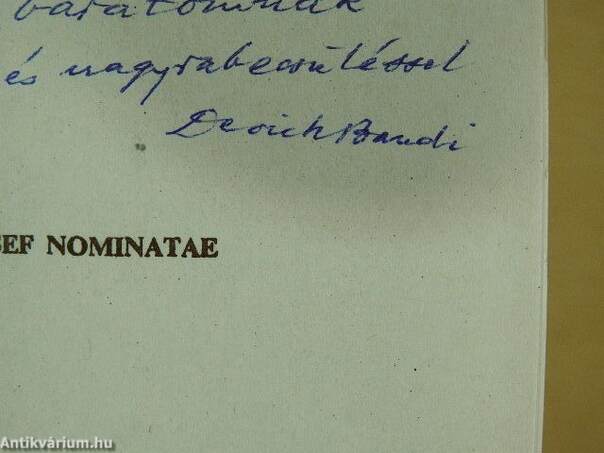 barátomnak
és nagyrabecsüléssel
Derich Bandi
SEF NOMINATAE
Antikvárium.hu